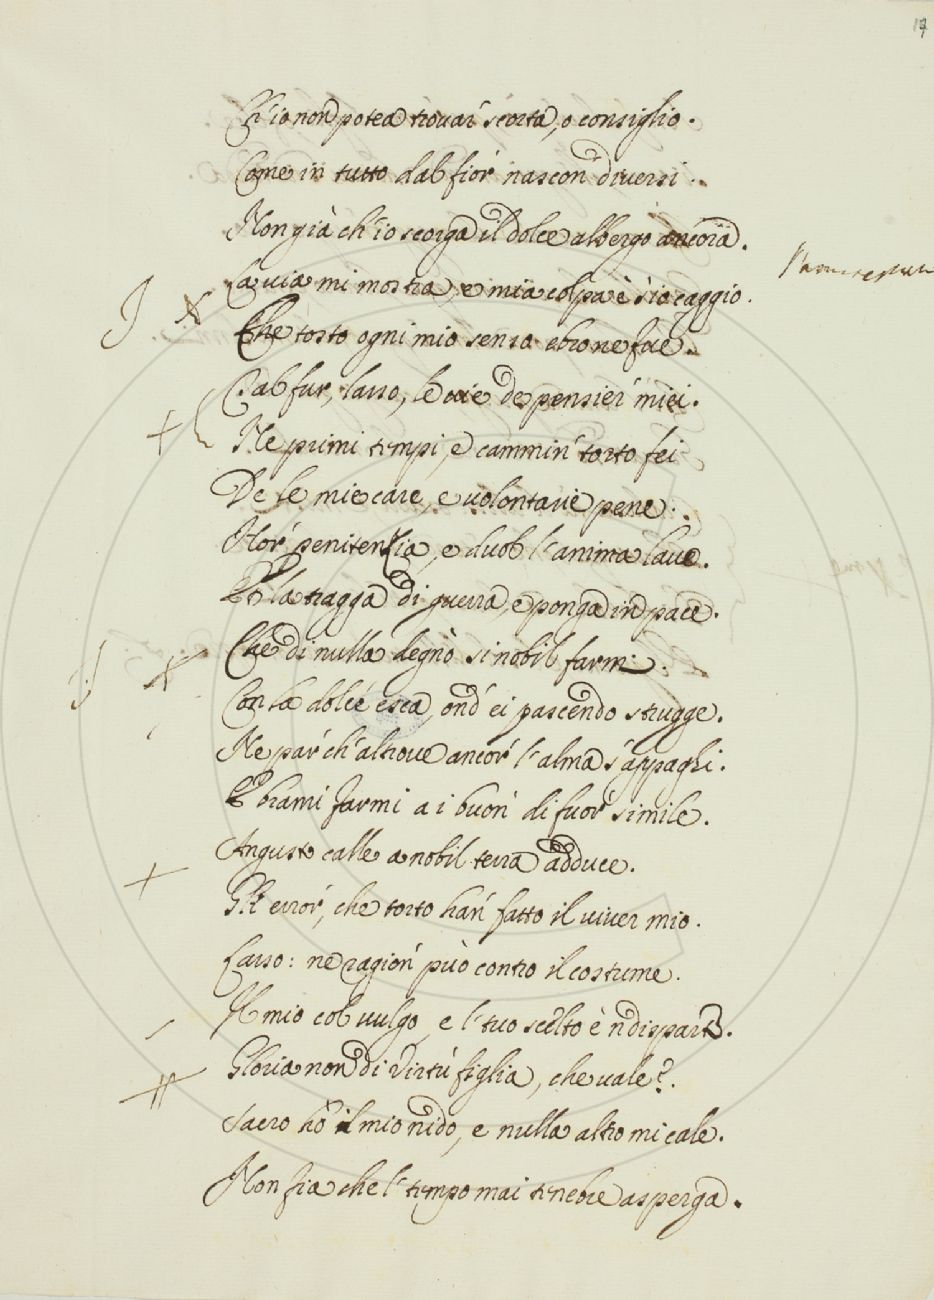 17
Ch'io non potea trovar scorta, o consiglio.
Come in tutto dal fior nascon diversi.
Non già ch'io scorga il dolce albergo ancora.
La via mi mostra, e mia colpa è s'io caggio.
Che tosto ogni mio senso ebro ne fue.
Tal fur, lasso, le vie de pensier miei.
Ne primi tempi, e cammin torto fei
De le mie care, e volontarie pene.
Hor penitenzia, e duol l'anima lave.
E la tragga di guerra, e ponga in pace.
Che di nulla degnò si nobil farmi.
Con la dolce esca, ond'ei pascendo strugge.
Ne par ch'altrove ancor l'alma s'appaghi.
E brami farmi a i buon di fuor simile.
Angusto calle a nobil terra adduce.
Gli error, che torto han fatto il viver mio.
Lasso: ne ragion può contro il costume.
Il mio col vulgo, e l'tuo scelto è n disparte.
Gloria non di virtù figlia, che vale?
Sacro hò il mio nido, e nulla altro mi cale.
Non fia che l'tempo mai tenebre asperga.